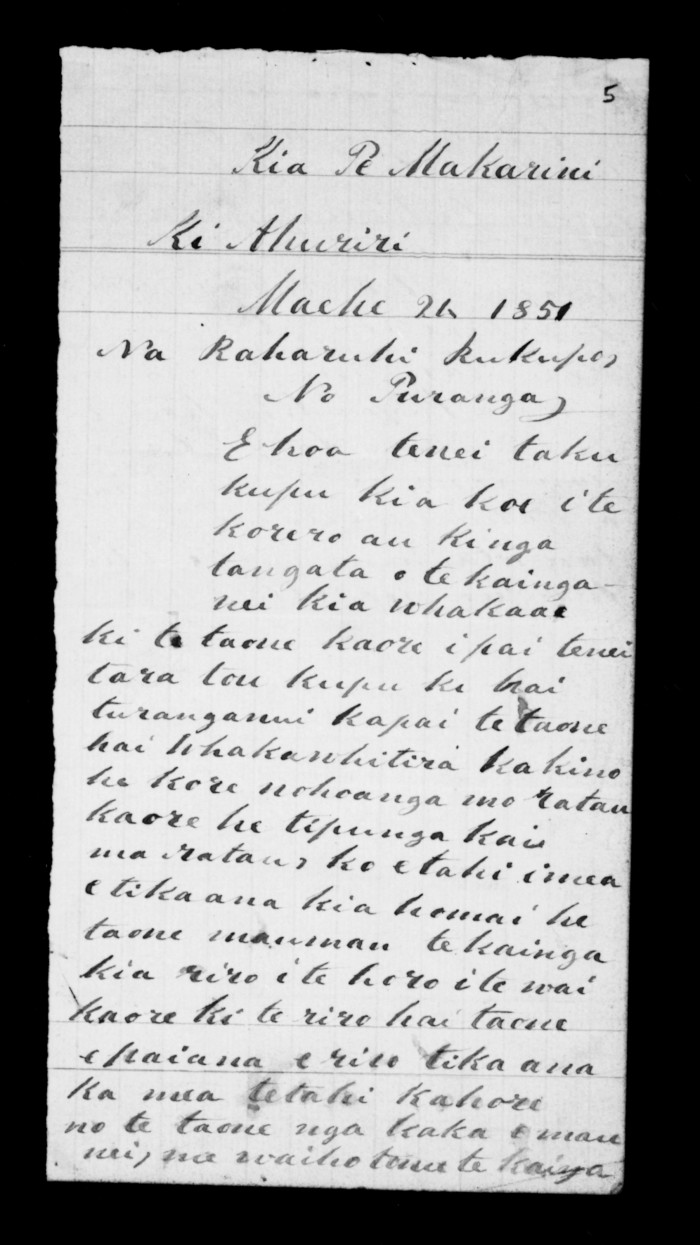 5
Kia Pe Makarini
Ki Ahuriri
Maehe 26 1851
Na Raharuhi Rukupo,
No Turanga,
E hoa tenei taku
kupu kia koe i te
korero au kinga
tangata o te kainga
nei kia whakaae
ki te taone kaore i pai tenei
tara tou kupu ke hai
turanganui kapai te taone
hai Whakawhitira kakino
he kore nohoanga mo ratau
kaore he tipunga kai
ma ratau, ko etahi imea
etika ana kia homai he
taone maumau te kainga
kia riro i te horo i te wai
kaore ki te riro hai taone
epaiana e riro tika ana
ka mea tetahi kahore
no te taone nga kaka e mau
nei, me waiho tonu te kainga